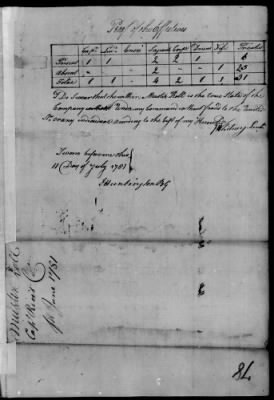 Proof of the Effectives
Capt. Lieut. Ensn. Serjeants Corpl. Drum Fife Privates
Present 1 1 2 2 1 6
Absent - - 2 - - 1 25
Total 1 1 4 2 1 1 31
I Do Swear that the within Muster Roll is the true State of the
Company without Under my Command without fraud to the United
St. or any individual according to the best of my Knowledge
Sworn before me this
11 Day of July 1781
J Huntington B G
Muster Roll
Capt Reeds Co
for June 1781
78